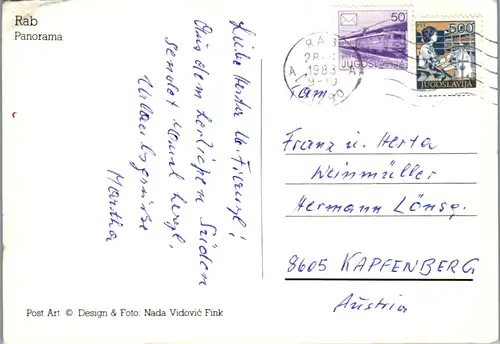 Rab
Panorama
Liebe Herta u. Franzl!
Aus dem herrlichen Süden
sendet Euch herzl.
Urlaubsgrüße
Martha
Post Art © Design & Foto: Nada Vidović Fink
50
JUGOSLAVIJA
500
JUGOSLAVIJA
RAB
Fam.
Franz u. Herta
Weinmüller
Hermann Lönsg.
8605 KAPFENBERG
Austria